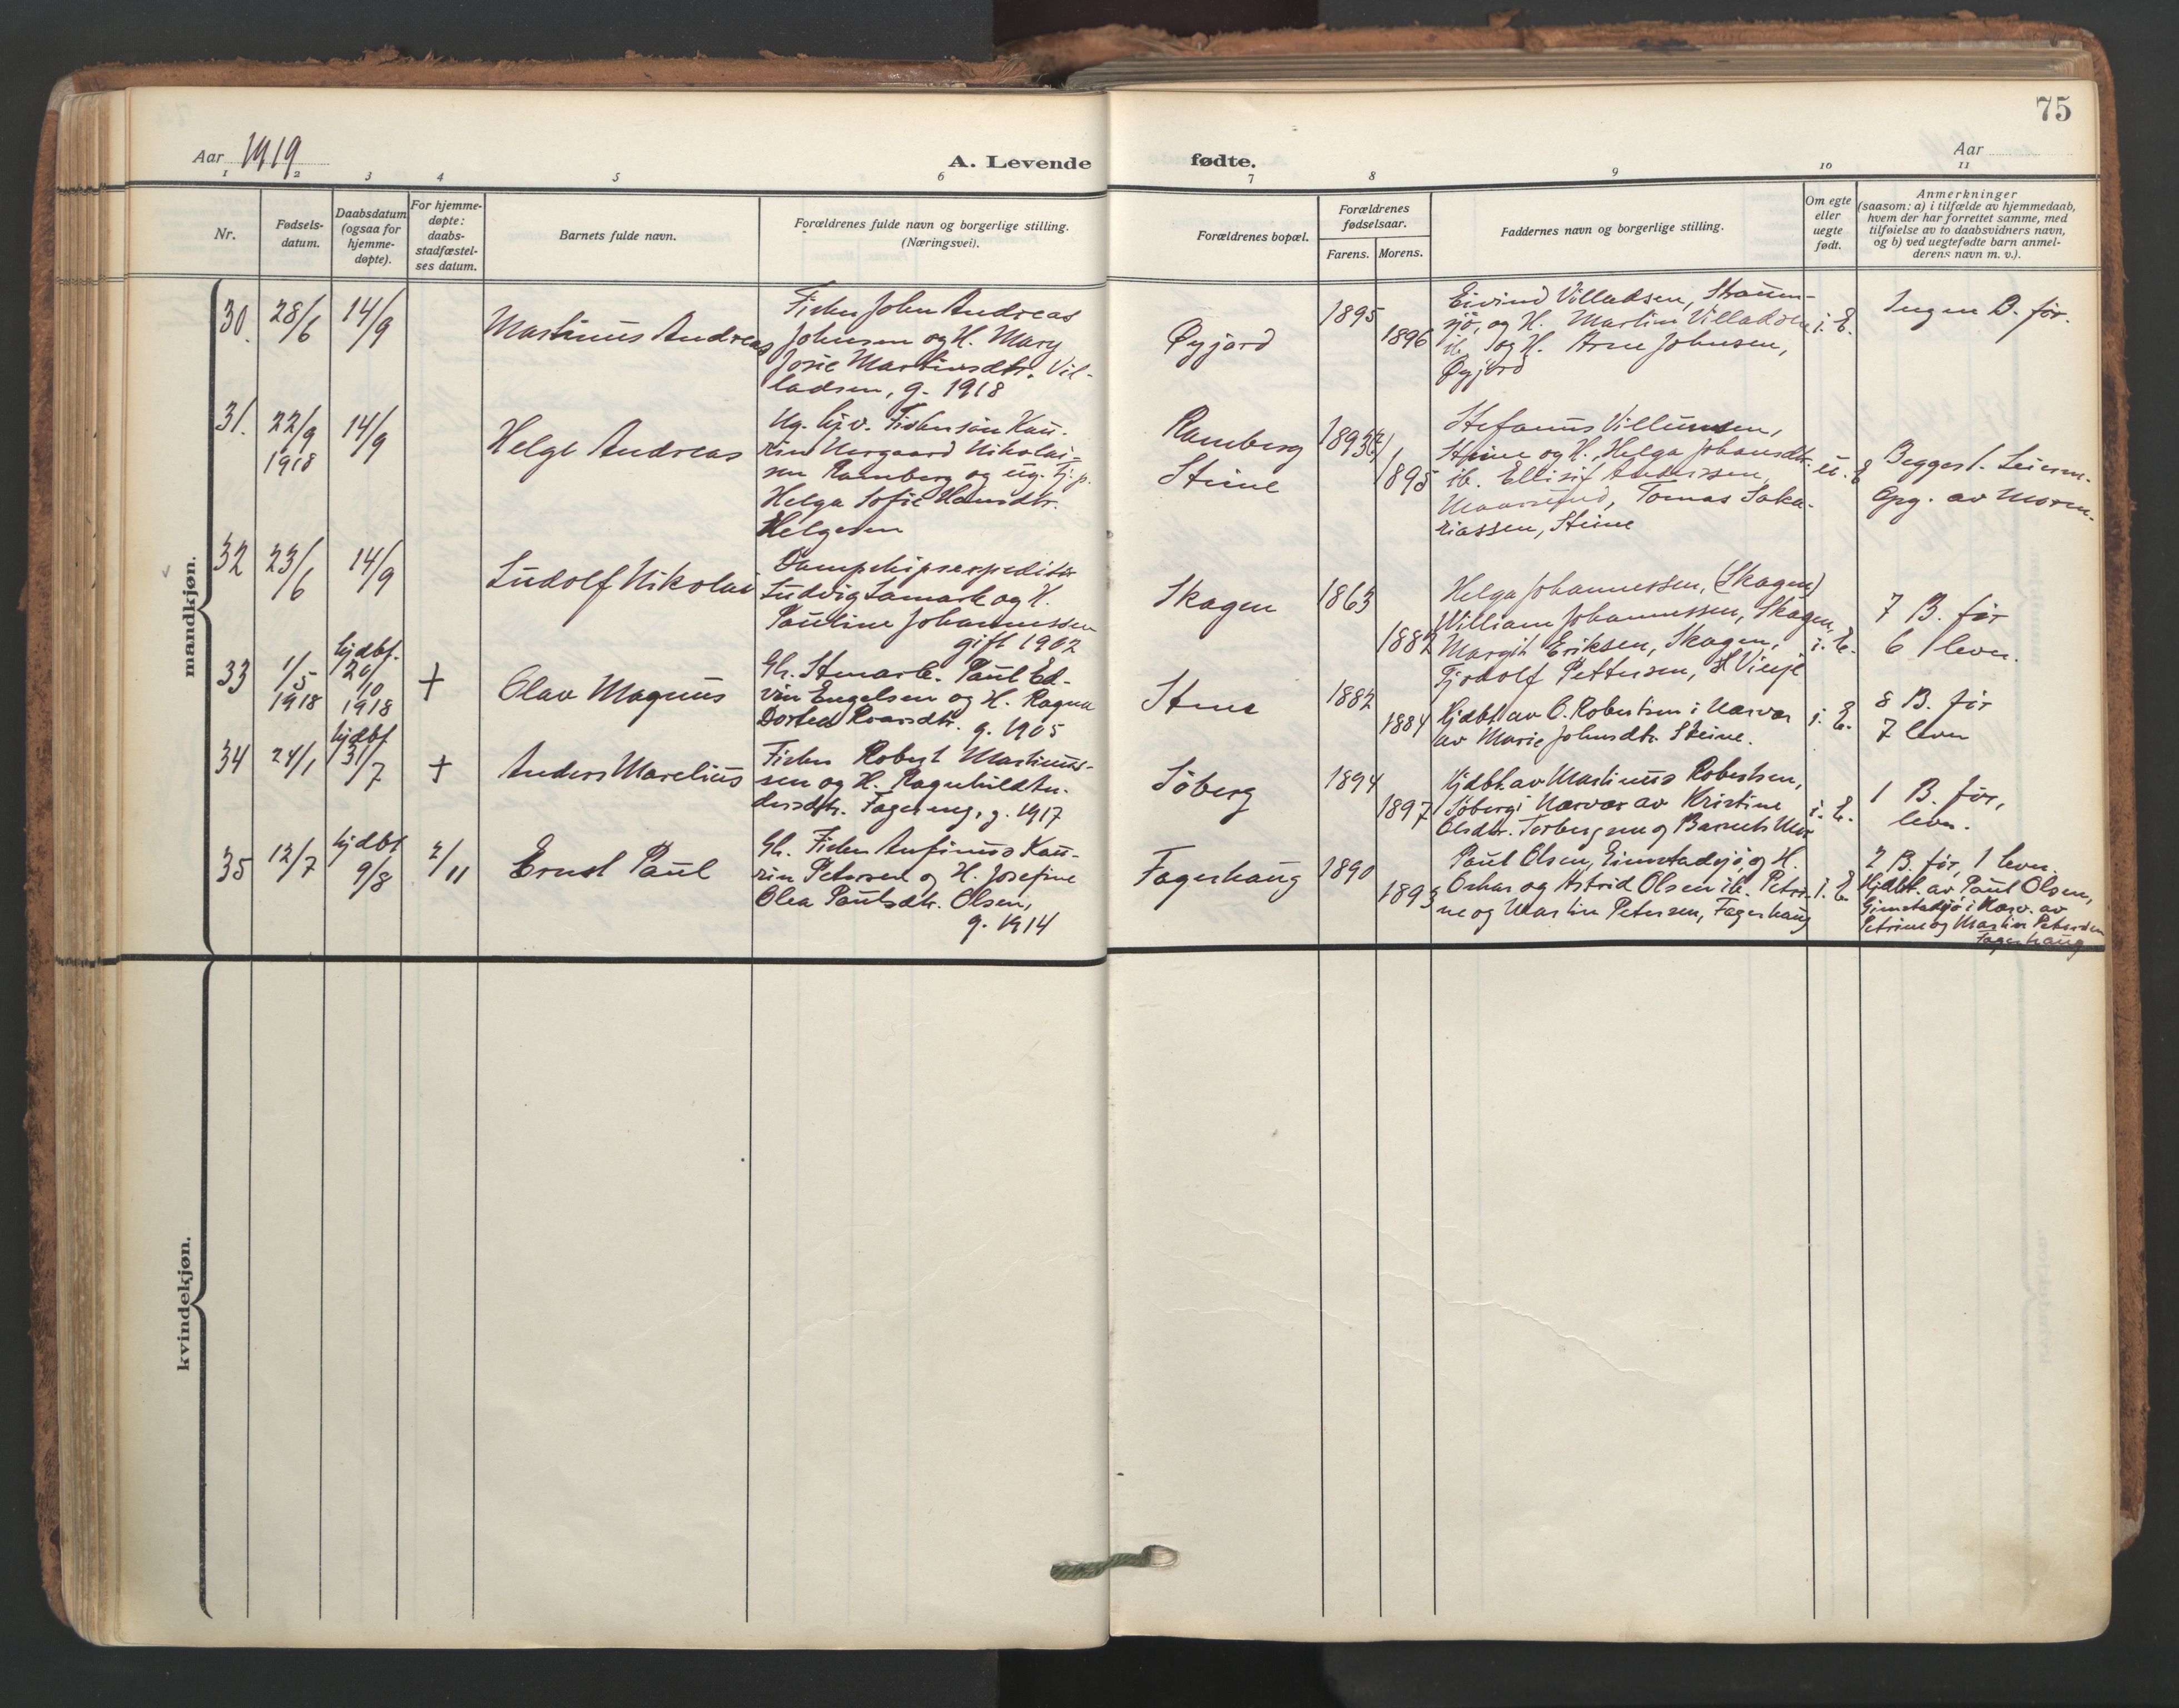 75
Aar 1919
A. Levende fødte.
Aar
1 2 3 4 5 6 7 8 9 10 11
Nr.
Fødsels-
datum.
Daabsdatum
(ogsaa for
hjemme-
døpte).
For hjemme-
døpte:
daabs-
stadfæstel-
ses datum.
Barnets fulde navn.
Forældrenes fulde navn og borgerlige stilling.
(Næringsvei).
Forældrenes bopæl.
Forældrenes
fødselsaar.
Farens. Morens.
Faddernes navn og borgerlige stilling.
Om egte
eller
uegte
født.
Anmerkninger
(saasom: a) i tilfælde av hjemmedaab,
hvem der har forrettet samme, med
tilføielse av to daabsvidners navn,
og b) ved uegtefødte barn anmel-
derens navn m. v.).
mandkjøn.
30. 28/6 14/9
Martinus Andreas
Fisker John Andreas
Johnsen og H. Mary
Josie Martinsdtr. Vil-
ladsen, g. 1918
Øyjord
1895
1896
Eivind Villadsen, Straum-
sjø, og H. Martin Villadsen
ib. og H. Arne Johnsen,
Øyjord
i. E.
Ingen B. før.
31. 22/9 1918 14/9
Helge Andreas
Ug. Fiskersøn Kau-
rin Norgaard Nikolai-
sen Ramberg og ug. Tj.p.
Helga Sofie Hansdtr.
Helgesen
Ramberg
Steine
1893
1895
Stefanus Villumsen,
Steine og H., Helga Johansdtr.
ib. Ellisif Andersen,
Tomas Saka-
riassen, Steine
u. E
Begges 1. Leierm.
Opg. av Moren.
32 23/6 14/9
Ludolf Nikolai
Dampskipsexpeditør
Ludvig Lamark og H.
Pauline Johannessen
gift 1902
Skagen
1863
1882
Helga Johannessen, (Skagen)
William Johannessen, Skagen,
Margit Eriksen, Skagen,
Fjodolf Pettersen, Vinje
i. E.
7 B. før
6 lever.
33 1/5 1918 hjdbt. 20/10 1918 +
Olav Magnus
Gh. Stenarb. Paul Ed-
vin Engelsen og H. Ragna
Dortea Roarsdtr. g. 1905
Stene
1882
1884
Hjdbt. av O. Robertsen i Nærvær
av Marie Johnsdtr. Steine.
i. E.
8 B. før
7 lever
34 24/1 hjdbt 31/7 +
Anders Marelius
Fisker Robert Martinus-
sen og H. Ragnhild An-
dersdtr. Fagereng, g. 1917
Søberg
1894
1897
Hjdbt. av Martinus Robertsen,
Søberg i Nærvær av Kristine
Olsdtr. Torbergsen og Barnets Mor
i. E.
1 B. før,
lever.
35 12/7 hjdbt 9/8 2/11
Ernst Paul
Gh. Fisker Anfinus Kau-
rin Petersen og H. Josefine
Olea Paulsdtr. Olsen,
g. 1914
Fagerhaug
1890
1893
Paul Olsen, Eimstadsjø, og H.
Oskar og Astrid Olsen ib. Petri-
ne og Martin Petersen, Fagerhaug
i. E.
2 B. før, 1 lever.
Hjdbt. av Paul Olsen,
Eimstadsjø i Nærv. av
Petrine og Martin Petersen
Fagerhaug
kvindekjøn.